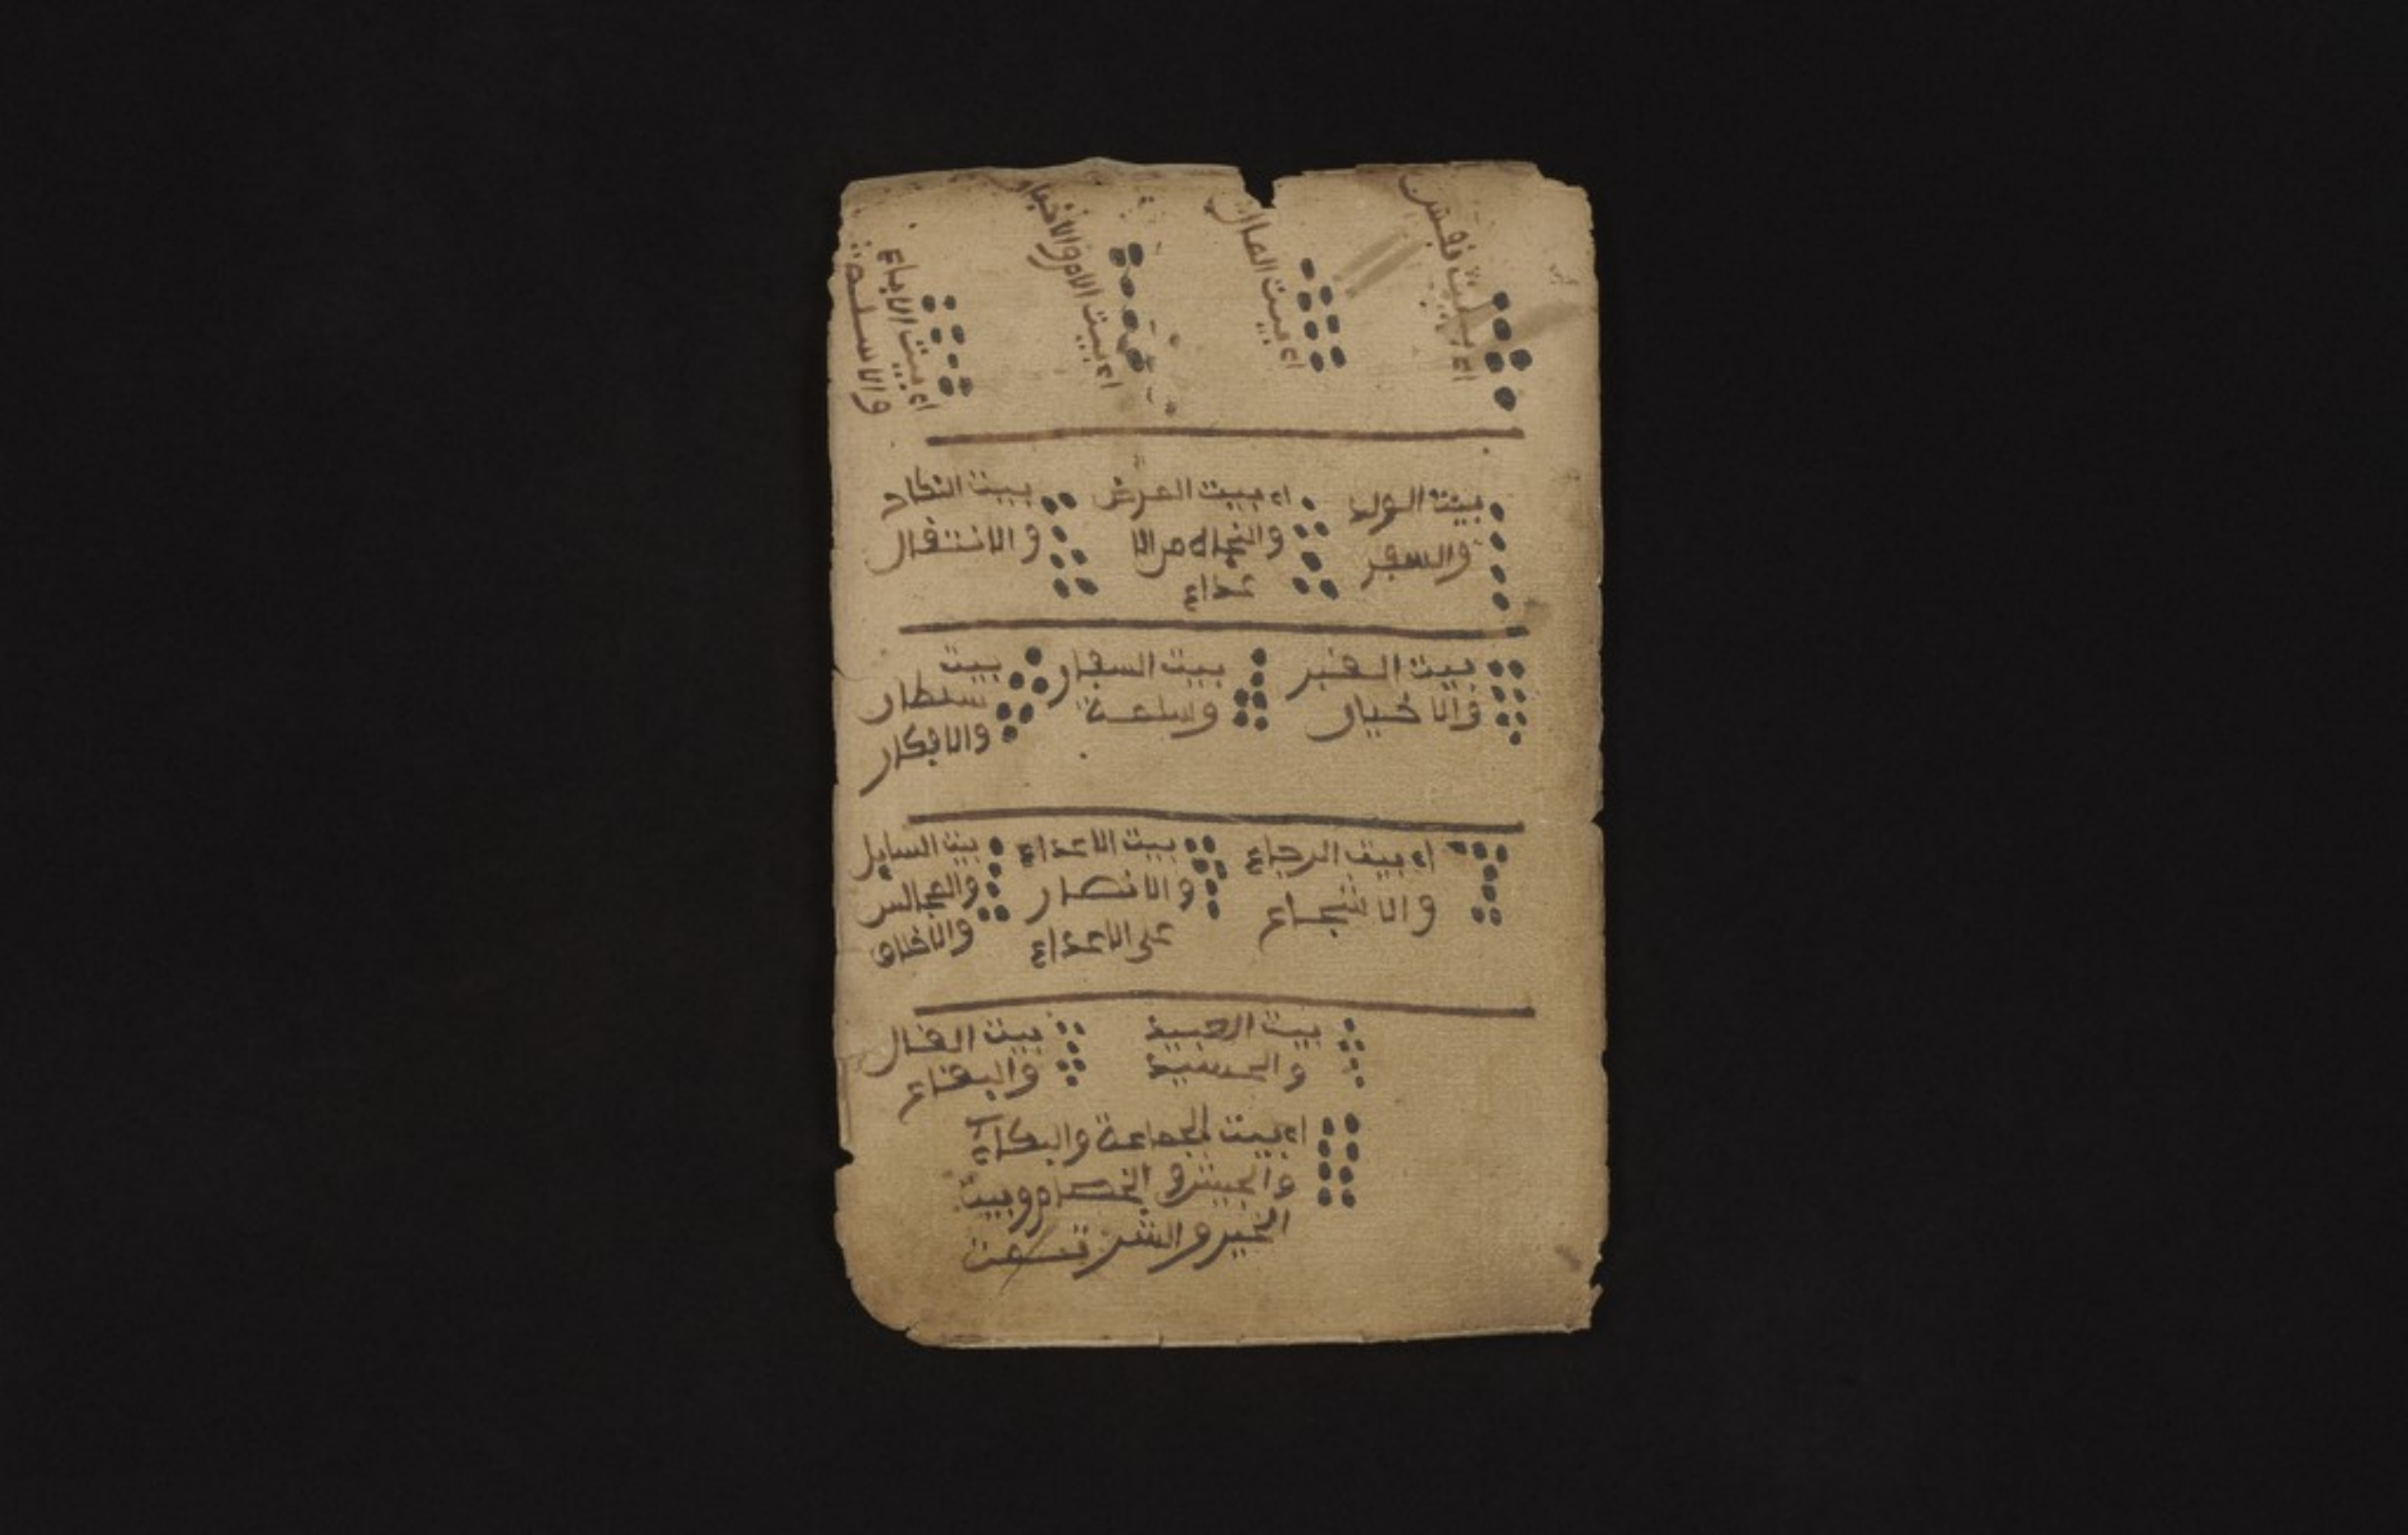 اي بيت نفس
اي بيت المال
اي بيت الام والاخبار
اي بيت الاباء
والاسلمة
بيت الولد
والسفر
اي بيت المرض
والنجاة من الا
عداء
بيت النكاح
والانتقال
بيت القبر
والاخيار
بيت السفار
وسلعة
بيت
سلطان
والافكار
اي بيت الرجاء
والا شجاع
بيت الاعداء
والانصار
على الاعداء
بيت السايل
والمجالس
والاخلاق
بيت العبيد
والحسيد
بيت الفال
والبقاع
اي بيت الجماعة والبكاء
والجيش و الخصام وبيت
الخير والشر تمت